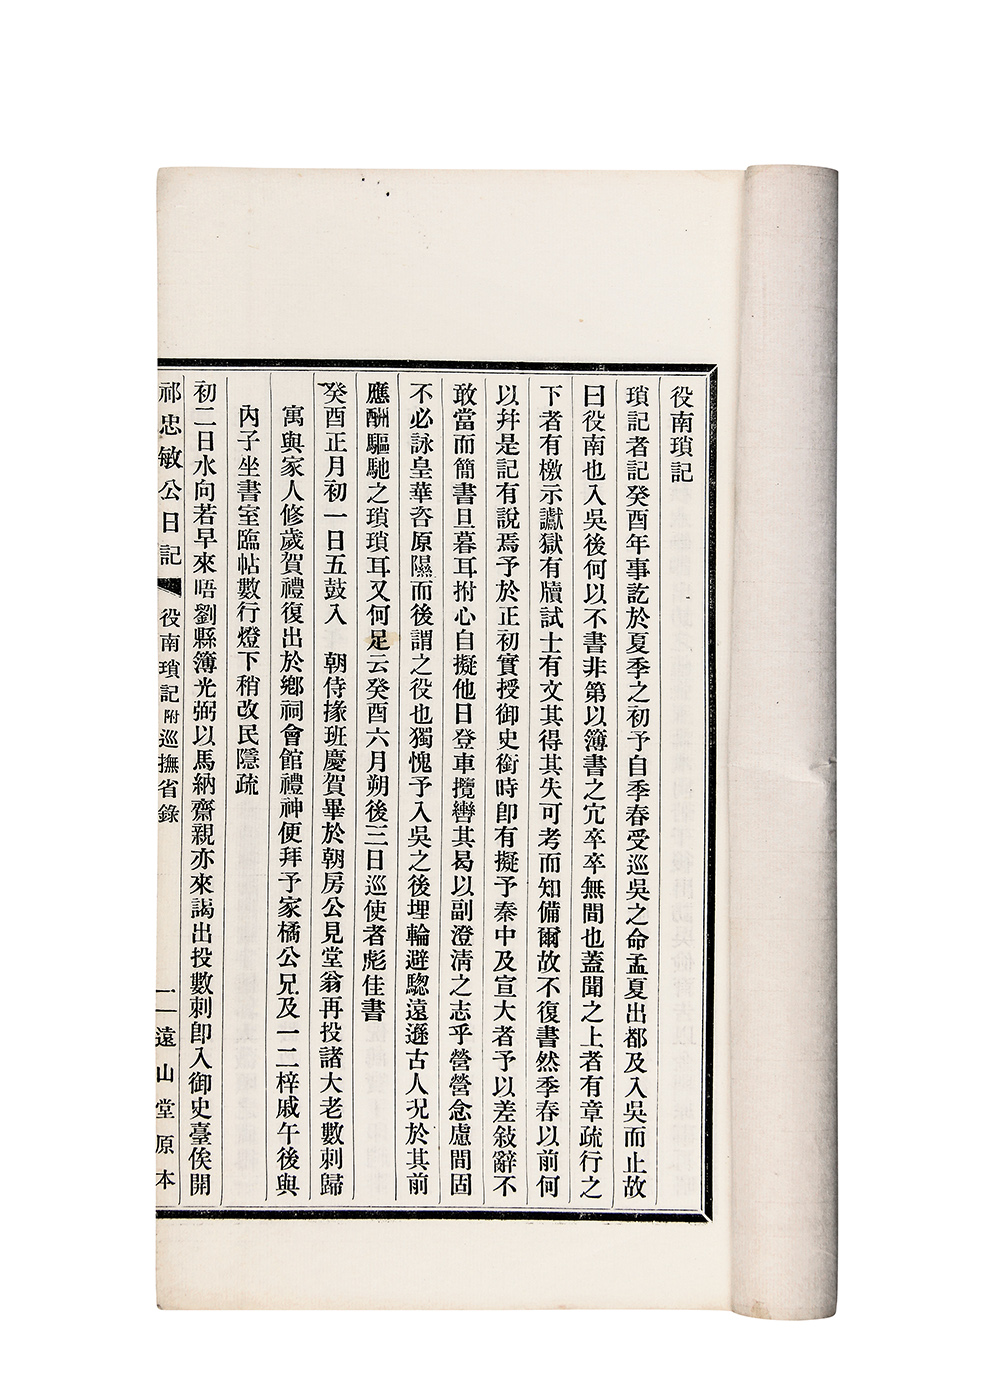 役南瑣記
瑣記者記癸酉年事訖於夏季之初予自季春受巡吳之命孟夏出都及入吳而止故
曰役南也入吳後何以不書非第以簿書之宂卒卒無間也蓋聞之上者有章疏行之
下者有檄示讞獄有牘試士有文其得其失可考而知備爾故不復書然季春以前何
以幷是記有說焉予於正初實授御史銜時卽有擬予秦中及宣大者予以差敍辭不
敢當而簡書旦暮耳拊心自擬他日登車攬轡其曷以副澄清之志乎營營念慮間固
不必詠皇華咨原隰而後謂之役也獨愧予入吳之後埋輪避驄遠遜古人況於其前
應酬驅馳之瑣瑣耳又何足云癸酉六月朔後三日巡使者彪佳書
癸酉正月初一日五鼓入　朝侍掾班慶賀畢於朝房公見堂翁再投諸大老數刺歸
寓與家人修歲賀禮復出於鄉祠會館禮神便拜予家橘公兄及一二梓戚午後與
內子坐書室臨帖數行燈下稍改民隱疏
初二日水向若早來唔劉縣簿光弼以馬納齋親亦來謁出投數刺卽入御史臺俟開
祁忠敏公日記　役南瑣記 附巡撫省錄　一　遠山堂原本